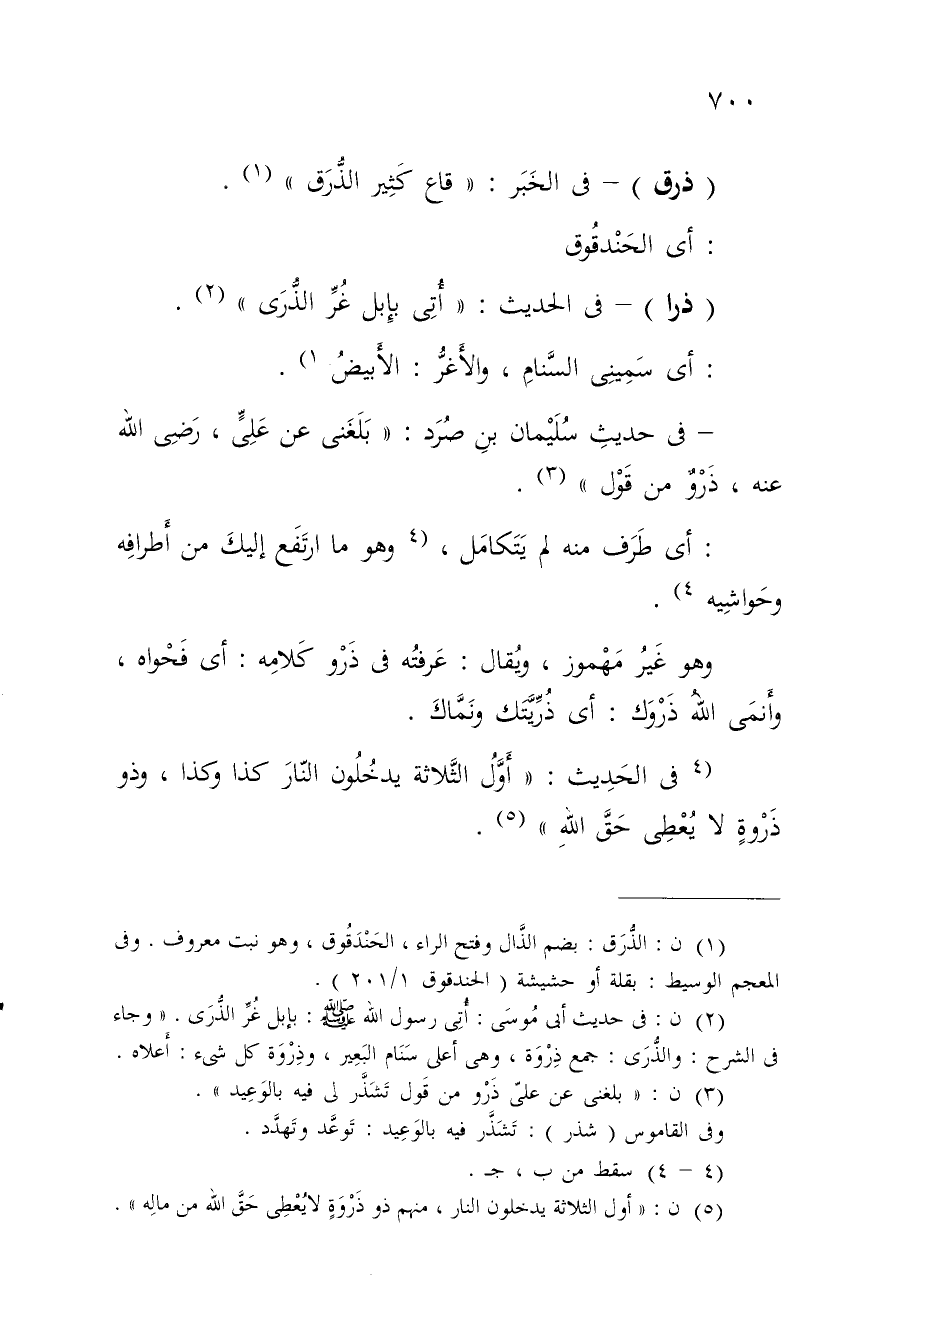 ٧٠٠
( ذرق ) – فى الخَبَر : « قاع كَثِير الذُّرَق » (١) .
: أى الحَنْدقُوق
( ذرا ) – فى الحديث : « أُتِى بإِبل غُرِّ الذُّرَى » (٢) .
: أى سَمِينِى السَّنامِ ، والأَغرُّ : الأَبيضُ ١) .
– فى حديثِ سُلَيْمان بنِ صُرَد : « بَلَغَنى عن عَلِىٍّ ، رَضِى الله
عنه ، ذَرْوٌ من قَوْل » (٣) .
: أى طَرَف منه لم يَتَكامَل ، (٤ وهو ما ارتَفَع إليكَ من أَطرافِه
وحَواشِيه ٤) .
وهو غَيرُ مَهْموز ، ويُقال : عَرفتُه فى ذَرْو كَلامِه : أى فَحْواه ،
وأَنمَى اللهُ ذَرْوَك : أى ذُرِّيَّتَك ونَمَّاكَ .
(٤ فى الحَدِيث : « أَوَّلُ الثَّلاثة يدخُلُون النّارَ كذا وكذا ، وذو
ذَرْوةٍ لا يُعْطِى حَقَّ اللهِ » (٥) .
(١) ن : الذُّرَق : بضم الذَّال وفتح الراء ، الحَنْدَقُوق ، وهو نبت معروف . وفى
المعجم الوسيط : بقلة أو حشيشة ( الحندقوق ٢٠١/١ ) .
(٢) ن : فى حديث أبى مُوسَى : أُتِى رسول الله ﷺ : بإبل غُرِّ الذُّرَى . « وجاء
فى الشرح : والذُّرَى : جمع ذِرْوَة ، وهى أعلى سَنَام البَعِير ، وذِرْوَة كل شىء : أَعلاه .
(٣) ن : « بلغنى عن علىّ ذَرْو من قَول تَشَذَّر لى فيه بالوَعِيد » .
وفى القاموس ( شذر ) : تَشَذَّر فيه بالوَعِيد : تَوعَّد وتَهدَّد .
(٤ – ٤) سقط من ب ، جـ .
(٥) ن : « أول الثلاثة يدخلون النار ، منهم ذو ذَرْوَةٍ لايُعْطِى حَقَّ الله من مالِه » .